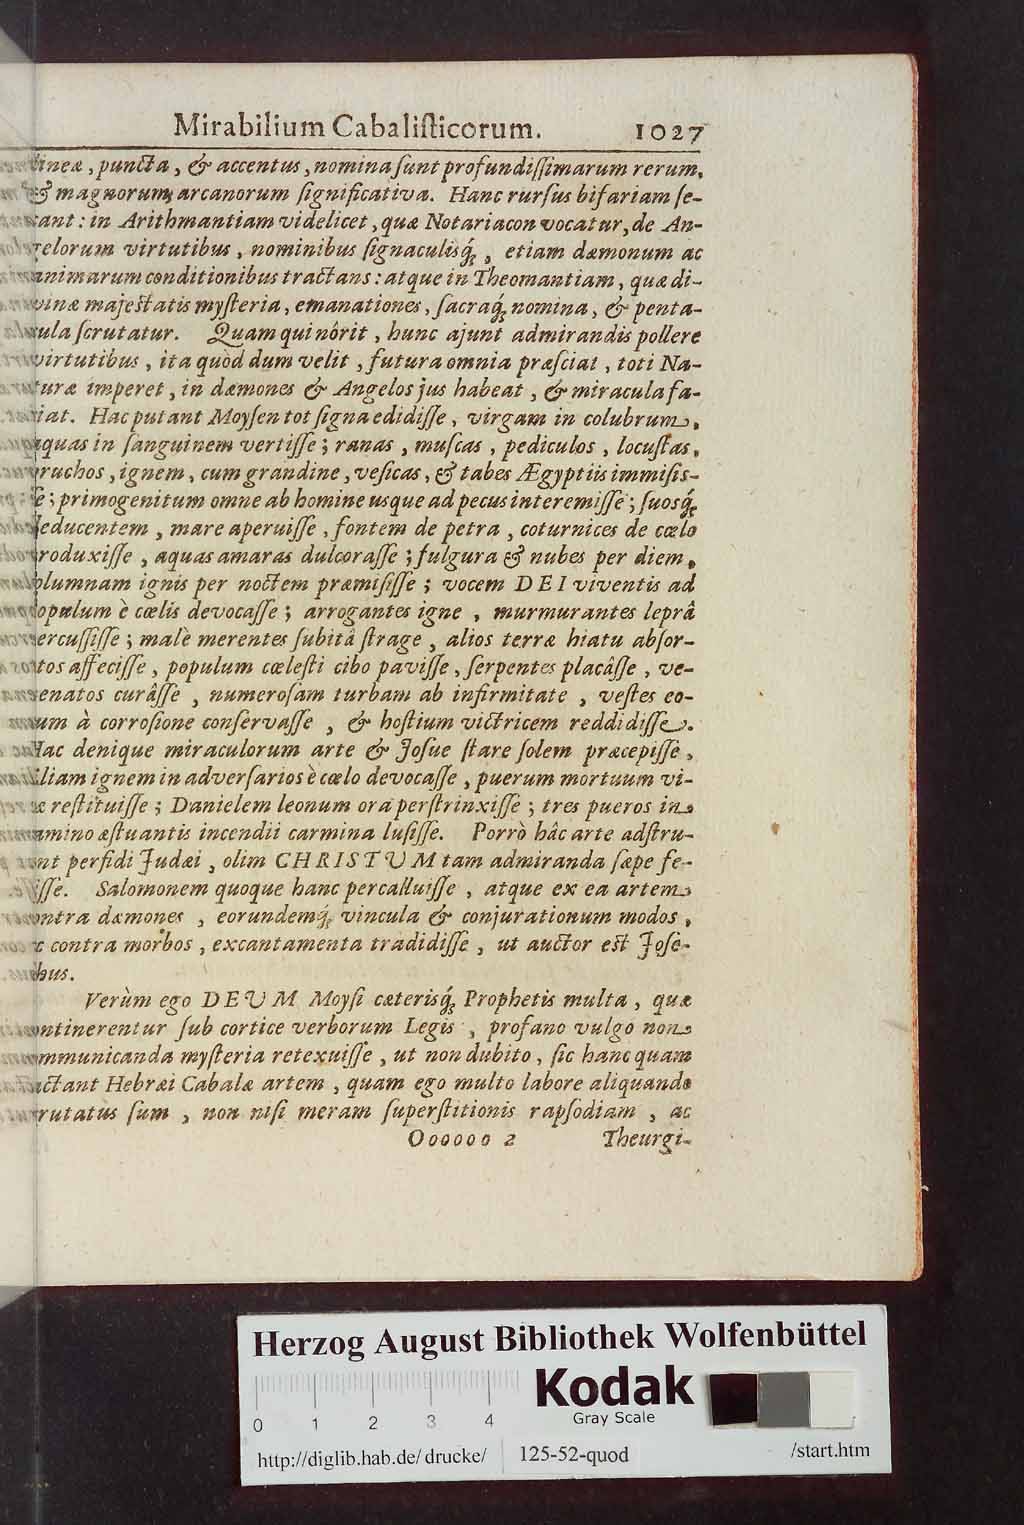 Mirabilium Cabaliſticorum. 1027
lineæ, puncta, & accentus, nomina ſunt profundiſſimarum rerum,
& magnorum arcanorum ſignificativa. Hanc rurſus bifariam ſe-
cant: in Arithmantiam videlicet, quæ Notariacon vocatur, de An-
gelorum virtutibus, nominibus ſignaculisq́;, etiam dæmonum ac
animarum conditionibus tractans: atque in Theomantiam, quæ di-
vinæ majeſtatis myſteria, emanationes, ſacraq́; nomina, & penta-
cula ſcrutatur. Quam qui nôrit, hunc ajunt admirandis pollere
virtutibus, ita quòd dum velit, futura omnia præſciat, toti Na-
turæ imperet, in dæmones & Angelos jus habeat, & miracula fa-
ciat. Hac putant Moyſen tot ſigna edidiſſe, virgam in colubrum,
aquas in ſanguinem vertiſſe; ranas, muſcas, pediculos, locuſtas,
bruchos, ignem, cum grandine, veſicas, & tabes Ægyptiis immiſis-
ſe; primogenitum omne ab homine usque ad pecus interemiſſe; ſuosq́;
educentem, mare aperuiſſe, fontem de petra, coturnices de cœlo
produxiſſe, aquas amaras dulcoraſſe; fulgura & nubes per diem,
columnam ignis per noctem præmiſiſſe; vocem DEI viventis ad
populum è cœlis devocaſſe; arrogantes igne, murmurantes leprâ
percuſſiſſe; malè merentes ſubitâ ſtrage, alios terræ hiatu abſor-
ptos affeciſſe, populum cœleſti cibo paviſſe, ſerpentes placâſſe, ve-
nenatos curâſſe, numeroſam turbam ab infirmitate, veſtes eo-
rum à corroſione conſervaſſe, & hoſtium victricem reddidiſſe.
Hac denique miraculorum arte & Joſue ſtare ſolem præcepiſſe,
Eliam ignem in adverſarios è cœlo devocaſſe, puerum mortuum vi-
tæ reſtituiſſe; Danielem leonum ora perſtrinxiſſe; tres pueros in
camino æſtuantis incendii carmina luſiſſe. Porrò hâc arte adſtru-
unt perfidi Judæi, olim CHRISTUM tam admiranda ſæpe fe-
ciſſe. Salomonem quoque hanc percalluiſſe, atque ex ea artem
contra dæmones, eorundemq́; vincula & conjurationum modos,
ac contra morbos, excantamenta tradidiſſe, ut auctor eſt Joſè-
phus.
Verùm ego DEUM Moyſi cæterisq́; Prophetis multa, quæ
continerentur ſub cortice verborum Legis, profano vulgo non
communicanda myſteria retexuiſſe, ut non dubito, ſic hanc quam
jactant Hebræi Cabalæ artem, quam ego multo labore aliquando
ſcrutatus ſum, non niſi meram ſuperſtitionis rapſodiam, ac
Oooooo 2 Theurgi-
Herzog August Bibliothek Wolfenbüttel
Kodak
Gray Scale
0 1 2 3 4
http://diglib.hab.de/drucke/ 125-52-quod /start.htm